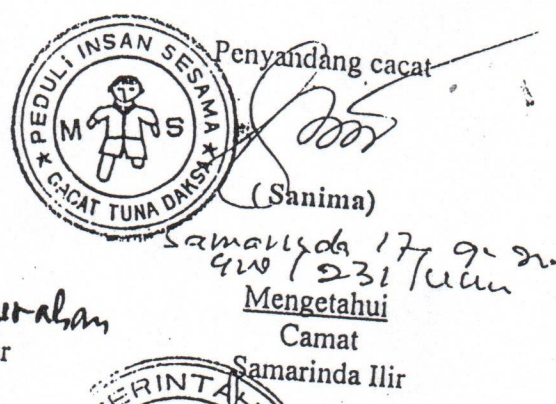 PEDULI INSAN SESAMA
M S
★ CACAT TUNA DAKSA ★
Penyandang cacat
(Sanima)
Samarinda 17
Mengetahui
Camat
Samarinda Ilir